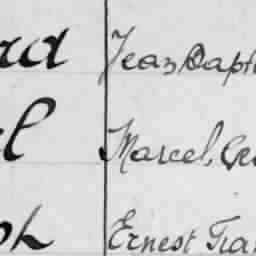 rd Jean Bapt
l Marcel, Ge
ph Ernest Fran